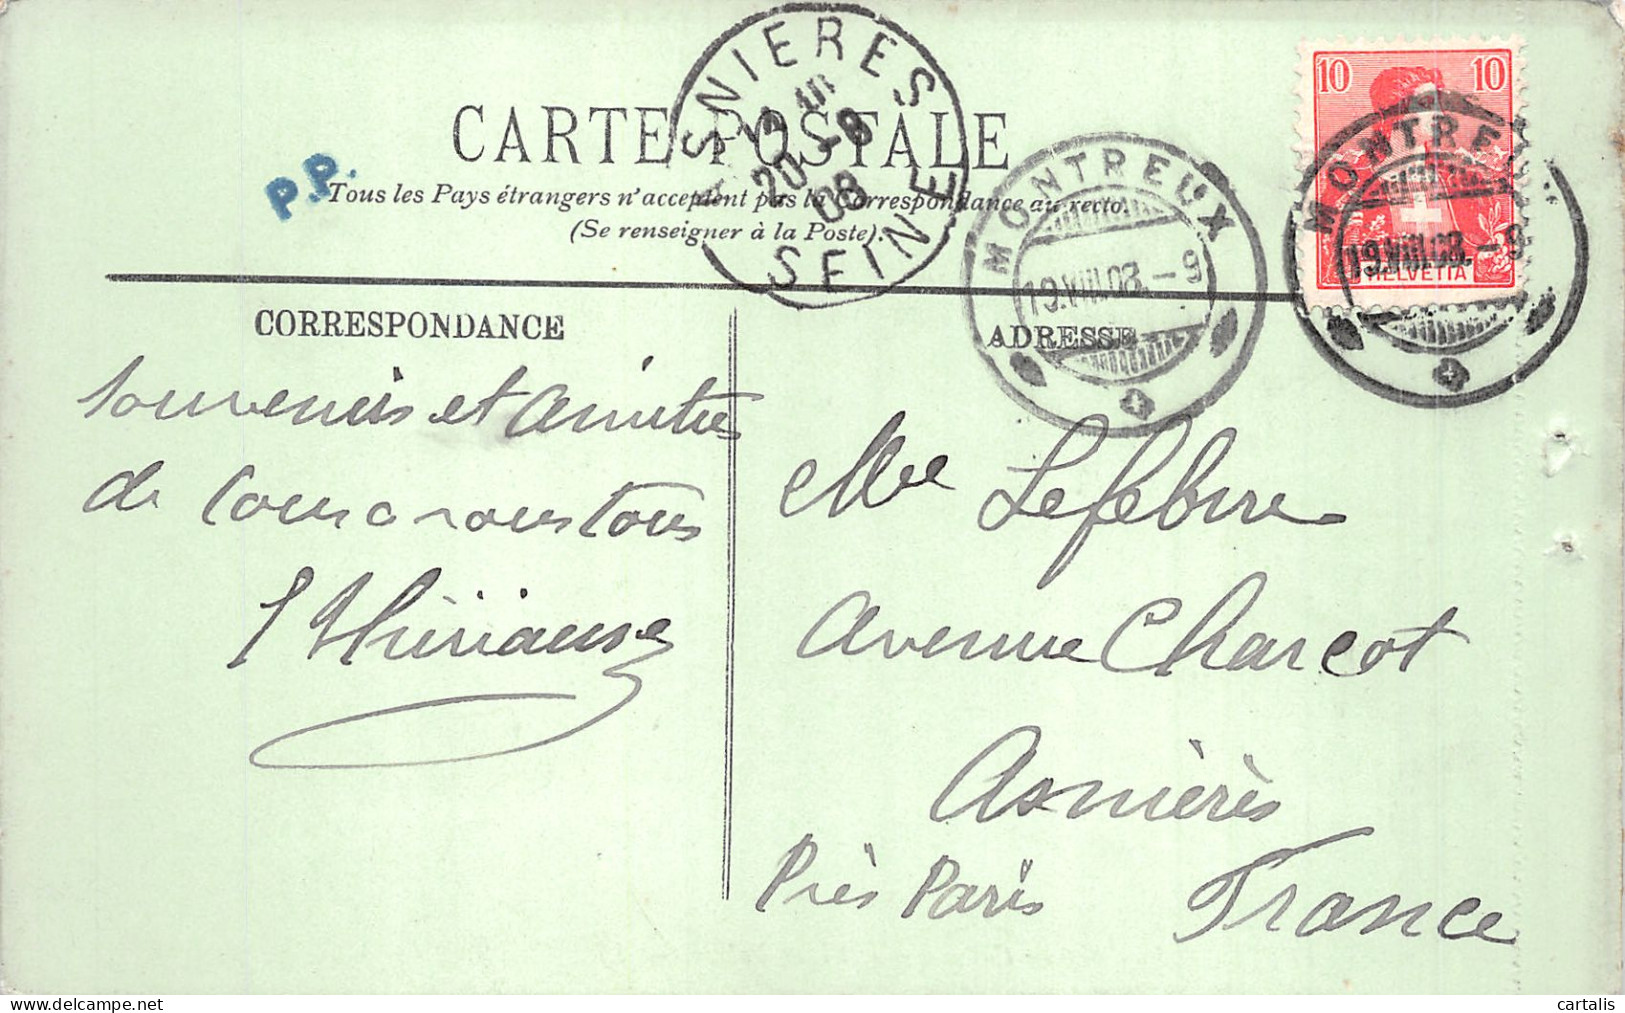 CARTE POSTALE
P.P.
Tous les Pays étrangers n'acceptent pas la Correspondance au recto.
(Se renseigner à la Poste).
ASNIERES
20-8
08
SEINE
MONTREUX
19.VIII.08.-9
10 10
HELVETIA
MONTREUX
19.VIII.08.-9
CORRESPONDANCE
Souvenirs et amitiés
de tous a vous tous
ADRESSE
Mme Lefebvre
Avenue Charcot
Asnières
Près Paris France
cartalis